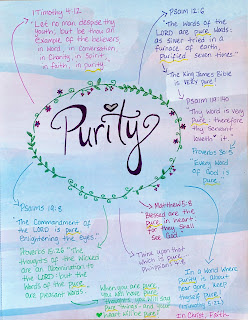 1 Timothy 4:12
"Let no man despise thy
youth; but be thou an
Example of the believers,
in Word, in Conversation
in Charity, in Spirit,
in faith, in purity.
Psalm 12:6
"The Words of the
LORD are pure words:
as silver tried in a
furnace of earth,
Purified seven times."
The King James Bible
is very pure!
Psalm 119:140
"Thy Word is very
pure: therefore
thy Servant
loveth it."
Purity
Proverbs 30:5
"Every Word
of God is
pure
Psalms 19:8
"The Commandment of
the LORD is pure,
Enlightening the Eyes."
Matthew 5:8
Blessed are the
pure in heart:
for they shall
see God
Proverbs 15:26 "The
thoughts of the Wicked
are an abomination to
the LORD: but the
Words of the pure
are pleasant words.
Think upon that
which is pure
Philippians 4:8
When you are pure
you will have pure
you will say
pure things - and your
heart will be pure!
In a World where
Purity is about
gone.. Keep
thyself pure!
1 Timothy 5:22
In Christ, Faith